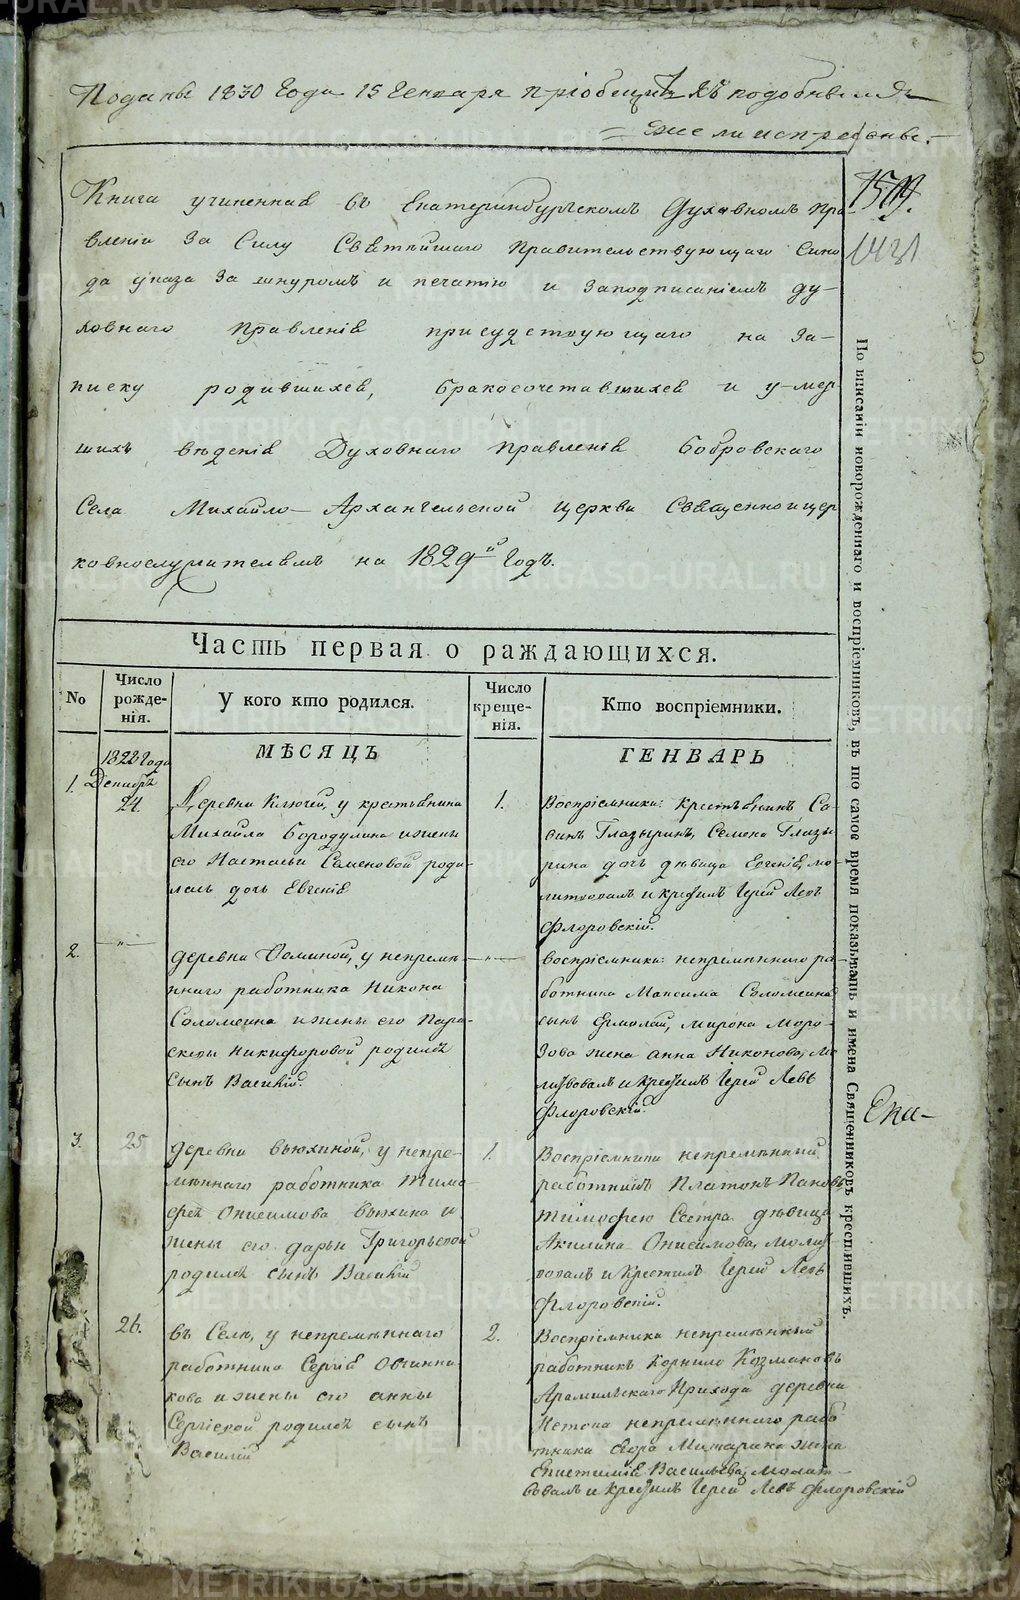 Поданы 1830 Года 15 Генваря пріобщить къ подобнымъ
ежели исправны.
1519.
Книга учиненная въ Екатеринбургскомъ Духовномъ пра-
вленіи За Силу Святѣйшаго Правительствующаго Сино
да указа За шнуромъ и печатію и Заподписаніемъ ду-
ховнаго Правленія присудствующаго на За-
писку родившихся, бракосочетавшихся и умер
шихъ вѣденія Духовнаго Правленія Бобровскаго
Села Михайло-Архангельской церкви Священноицер
ковнослужителямъ на 1829й Годъ.
Часть первая о раждающихся.
No
Число рожде-нія.
У кого кто родился.
Число креще-нія.
Кто воспріемники.
МѢСЯЦЪ
ГЕНВАРЬ
1828 Года
1. Декабрѣ
24.
Деревни Ключей, у крестьянина
Михайла Бородулина ижены
его Настасьи Семеновой роди-
лась дочь Евгенія
1.
Воспріемники: крестьянинъ Са-
винъ Глазыринъ, Семена Глазы
рина дочь дѣвица Евгенія, мо-
литвовалъ и крестилъ Іерей Левъ
Флоровскій.
2.
— " —
деревни Фоминой, у непремѣ-
ннаго работника Никона
Соломеина ижены его Пара-
скевы Никифоровой родился
сынъ Василій.
— " —
воспріемники: непремѣннаго ра-
ботника Максима Соломеина
сынъ Ермолай, Мирона Моро-
зова жена анна Никонова, мо
литвовалъ и крестилъ Іерей Левъ
Флоровскій.
3.
25
деревни Вьюхиной, у непре-
мѣннаго работника Тимо-
фея Онисимова Вьюхина и
жены его Дарьи Григорьевой
родился сынъ Василій
1.
Воспріемники непремѣнный
работникъ Платонъ Пановъ
Тимофею Сестра дѣвица
Акилина Онисимова, молит
вовалъ и крестилъ Іерей Левъ
Флоровскій.
26.
въ Селѣ, у непремѣннаго
работника Сергія Овчинни
кова ижены его анны
Сергіевой родился сынъ
Василій
2.
Воспріемники непремѣнный
работникъ Корнило Козмановъ
Арамильскаго Прихода деревни
Истока непремѣннаго рабо
тника жена
Епистимія Васильева, Молит-
вовалъ и крестилъ Іерей Левъ Флоровскій
По вписаніи новорожденнаго и воспріемниковъ, въ то самое время показывать и имена Священниковъ крестившихъ.
Ека-
METRIKI.GASO-URAL.RU